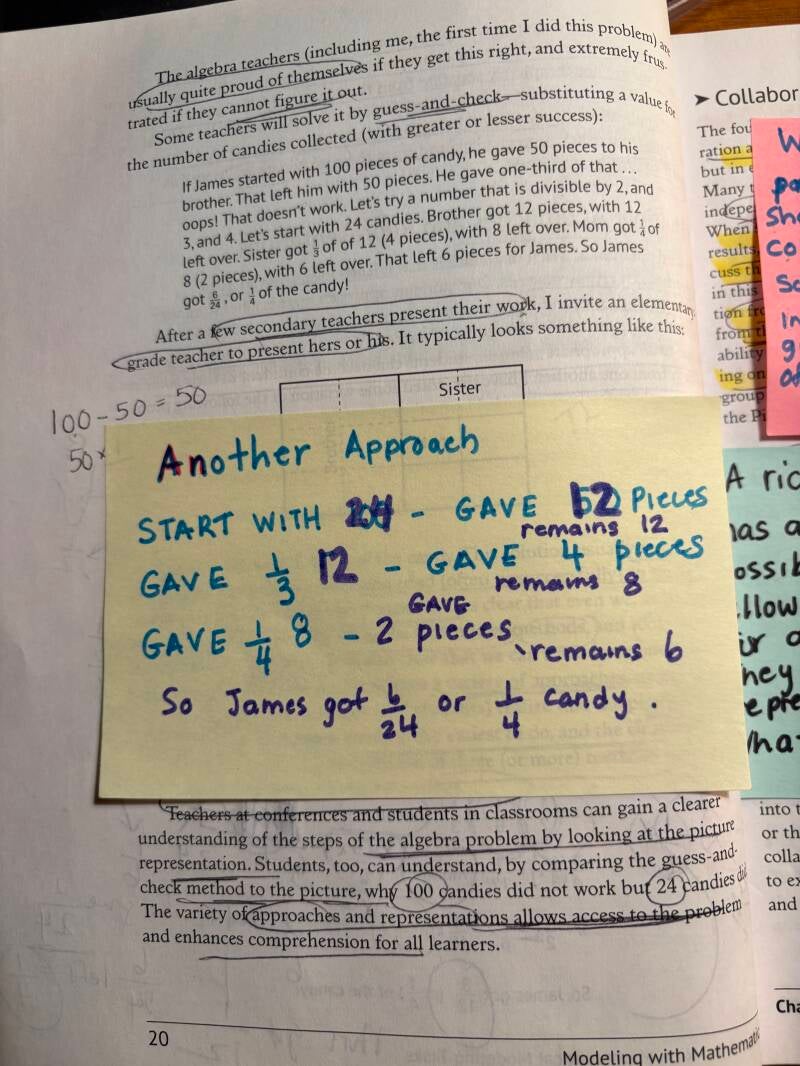 The algebra teachers (including me, the first time I did this problem) are
usually quite proud of themselves if they get this right, and extremely frus-
trated if they cannot figure it out.
Some teachers will solve it by guess-and-check—substituting a value for
the number of candies collected (with greater or lesser success):
If James started with 100 pieces of candy, he gave 50 pieces to his
brother. That left him with 50 pieces. He gave one-third of that …
oops! That doesn't work. Let's try a number that is divisible by 2, and
3, and 4. Let's start with 24 candies. Brother got 12 pieces, with 12
left over. Sister got 1/3 of of 12 (4 pieces), with 8 left over. Mom got 1/4 of
8 (2 pieces), with 6 left over. That left 6 pieces for James. So James
got 6/24, or 1/4 of the candy!
After a few secondary teachers present their work, I invite an elementary
grade teacher to present hers or his. It typically looks something like this:
Sister
100 - 50 = 50
50 ×
Another Approach
START WITH 24 - GAVE 12 PIECES
remains 12
GAVE 1/3 12 - GAVE 4 pieces
remains 8
GAVE
GAVE 1/4 8 - 2 pieces
remains 6
So James got 6/24 or 1/4 candy.
Teachers at conferences and students in classrooms can gain a clearer
understanding of the steps of the algebra problem by looking at the picture
representation. Students, too, can understand, by comparing the guess-and-
check method to the picture, why 100 candies did not work but 24 candies did
The variety of approaches and representations allows access to the problem
and enhances comprehension for all learners.
20
Modeling with Mathemati
➤ Collabor
The fou
ration a
but in e
Many t
indepe
When
results,
cuss th
in this
tion fro
from th
ability
ing on
group
the Pi
W
po
Sho
co
So
in
g
of
A ric
has a
possib
allow
ir o
hey
epre
wha
into t
or th
colla
to ex
and
Cha